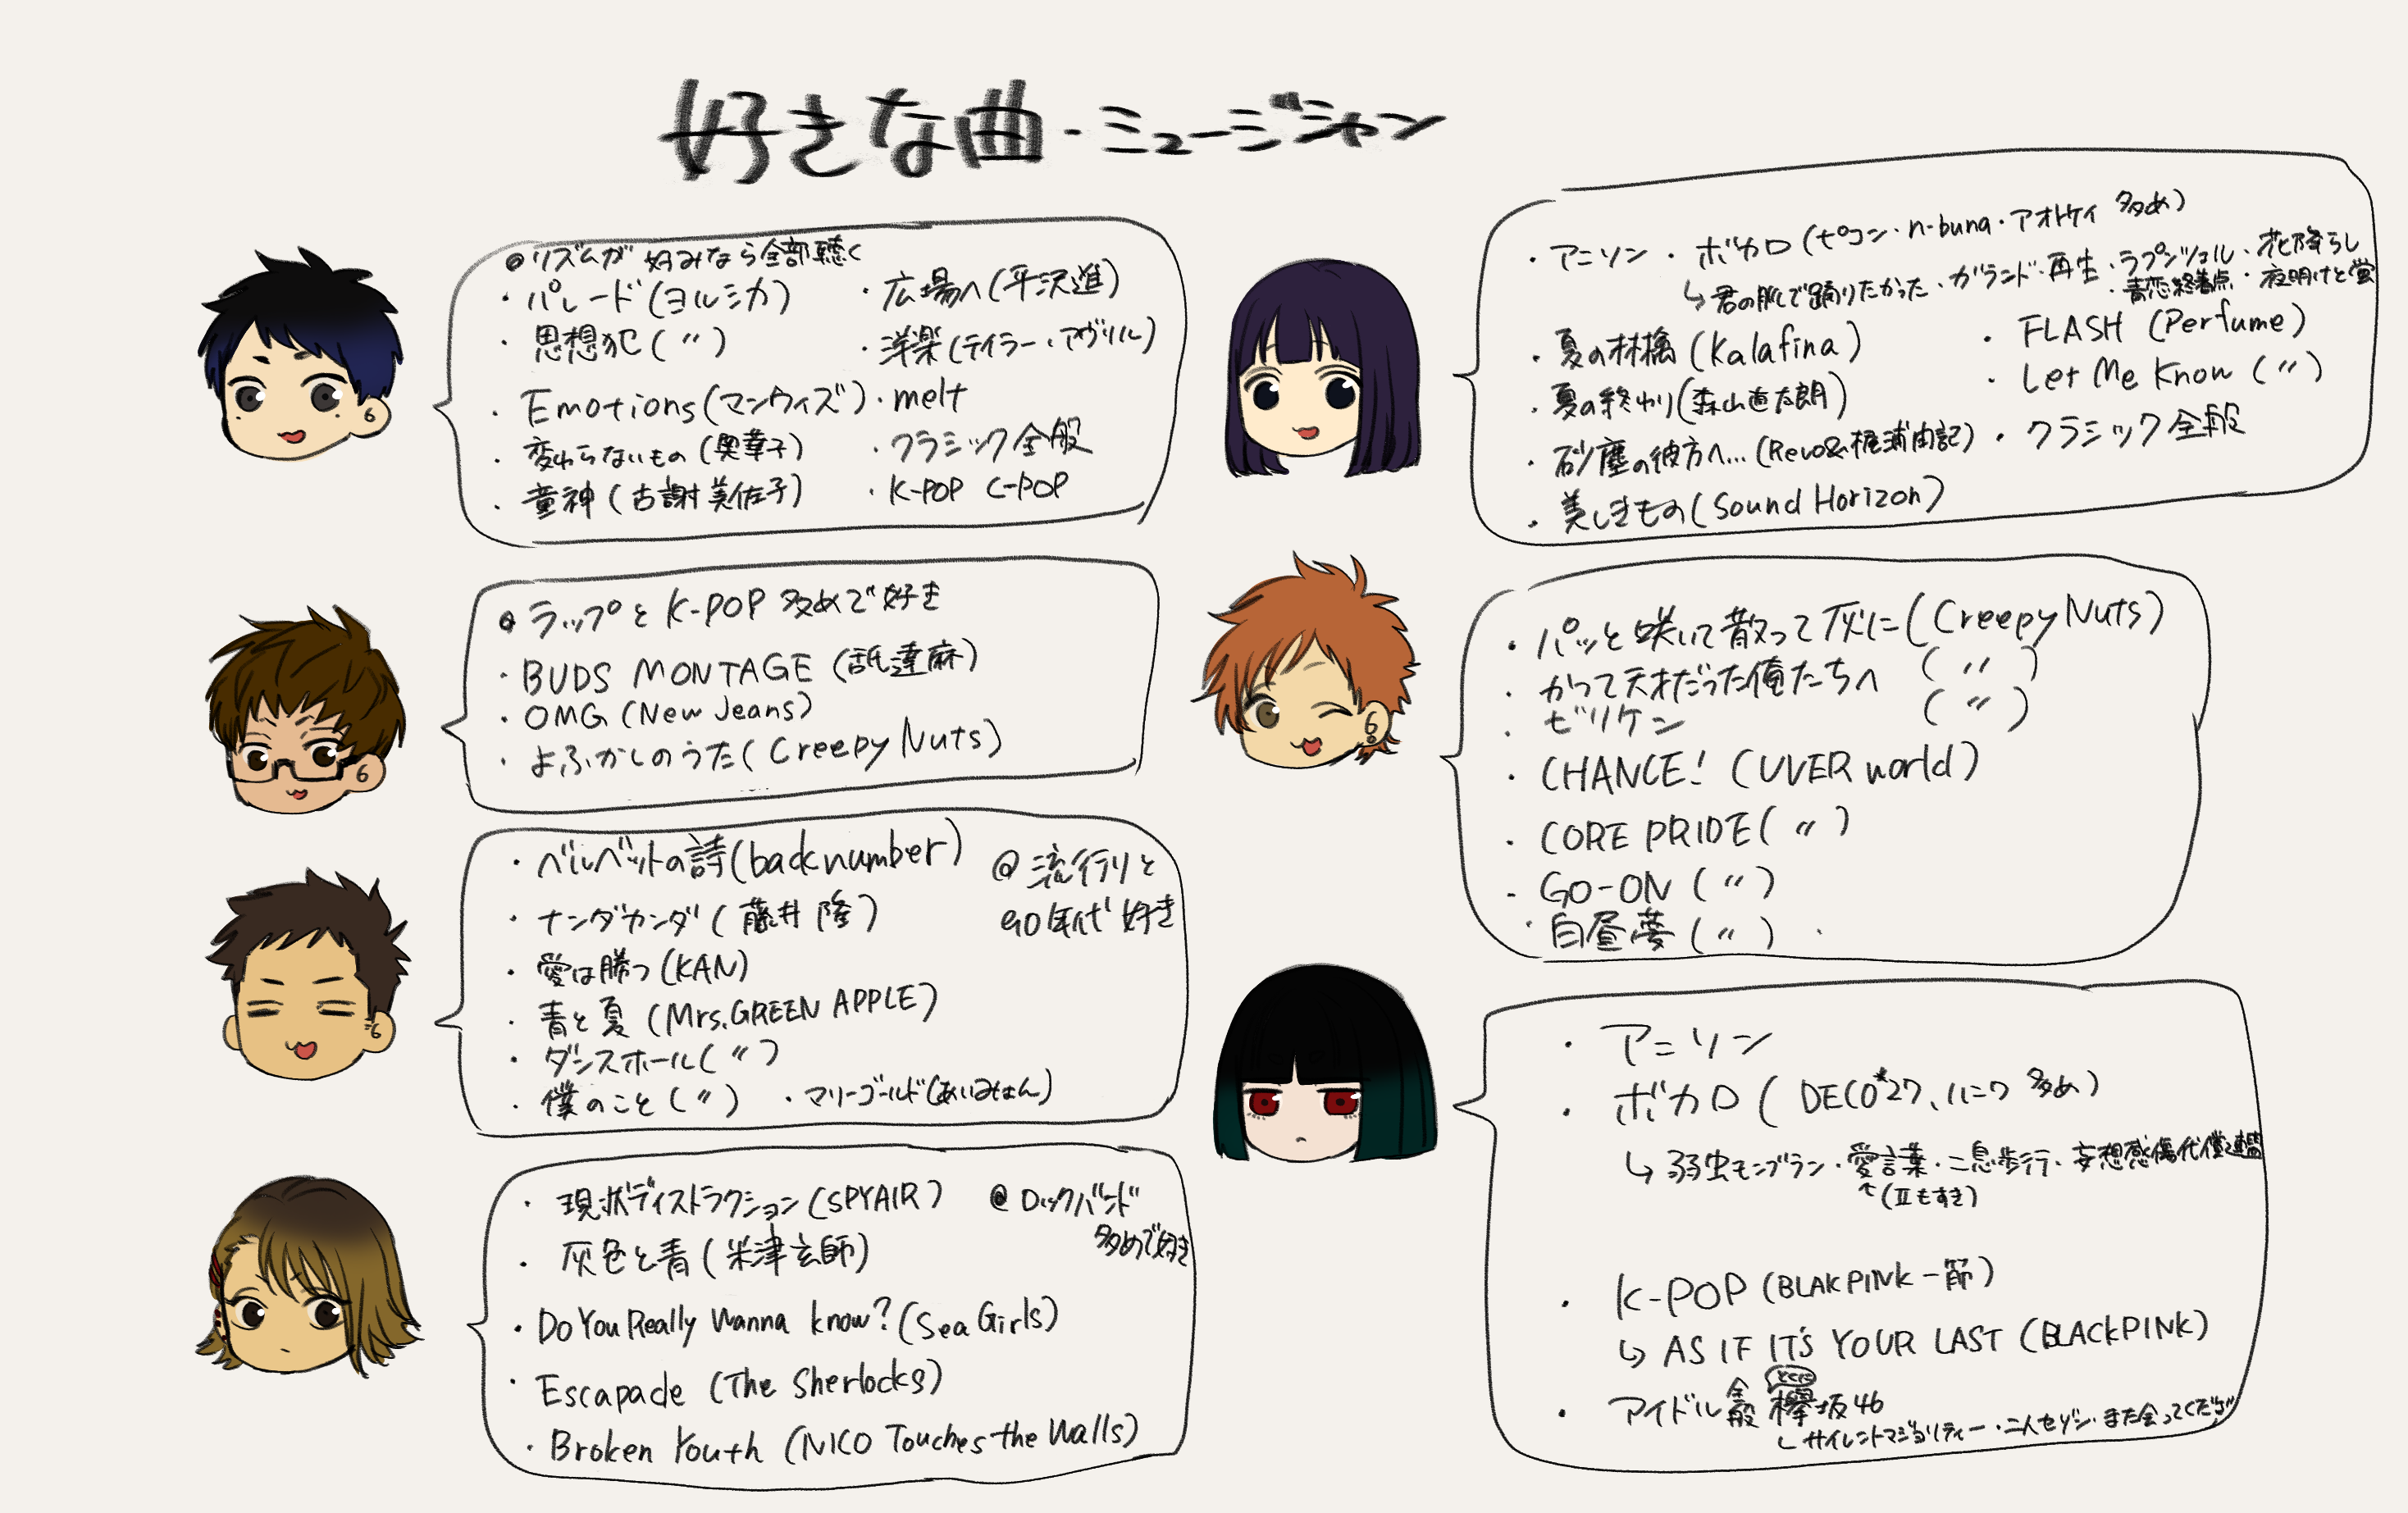 好きな曲・ミュージシャン
◎リズムが好みなら全部聴く
・パレード(ヨルシカ)
・思想犯(〃)
・Emotions(マンウィズ)
・変わらないもの(奥華子)
・童神(古謝美佐子)
・広場へ(平沢進)
・洋楽(テイラー・アヴリル)
・melt
・クラシック全般
・K-POP C-POP
・アニソン・ボカロ(ピコン・n-buna・アオトケイ 多め)
↳君の脈で踊りたかった・ガランド・再生・ラプンツェル・花降らし
・青恋終着点・夜明けと蛍
・夏の林檎(Kalafina)
・夏の終わり(森山直太朗)
・砂塵の彼方へ…(Revo&梶浦由記)
・美しきもの(Sound Horizon)
・FLASH(Perfume)
・Let Me Know(〃)
・クラシック全般
◎ラップとK-POP多めで好き
・BUDS MONTAGE(舐達麻)
・OMG(New Jeans)
・よふかしのうた(Creepy Nuts)
・パッと咲いて散って灰に(Creepy Nuts)
・かつて天才だった俺たちへ(〃)
・ビリケン(〃)
・CHANCE!(UVER world)
・CORE PRIDE(〃)
・GO-ON(〃)
・白昼夢(〃)
・ベルベットの詩(back number)
・ナンダカンダ(藤井隆)
・愛は勝つ(KAN)
・青と夏(Mrs.GREEN APPLE)
・ダンスホール(〃)
・僕のこと(〃)
・マリーゴールド(あいみょん)
@流行りと
90年代好き
・アニソン
・ボカロ(DECO*27、ハニワ 多め)
↳弱虫モンブラン・愛言葉・二息歩行・妄想感傷代償連盟
↑(Ⅱもすき)
・K-POP(BLAKPINK一筋)
↳AS IF IT'S YOUR LAST(BLACKPINK)
・アイドル全般 とくに 欅坂46
↳サイレントマジョリティー・二人セゾン・また会ってください
・現状ディストラクション(SPYAIR)
・灰色と青(米津玄師)
・Do You Really Wanna know?(Sea Girls)
・Escapade(The Sherlocks)
・Broken Youth(NICO Touches the Walls)
@ロックバンド
多めで好き